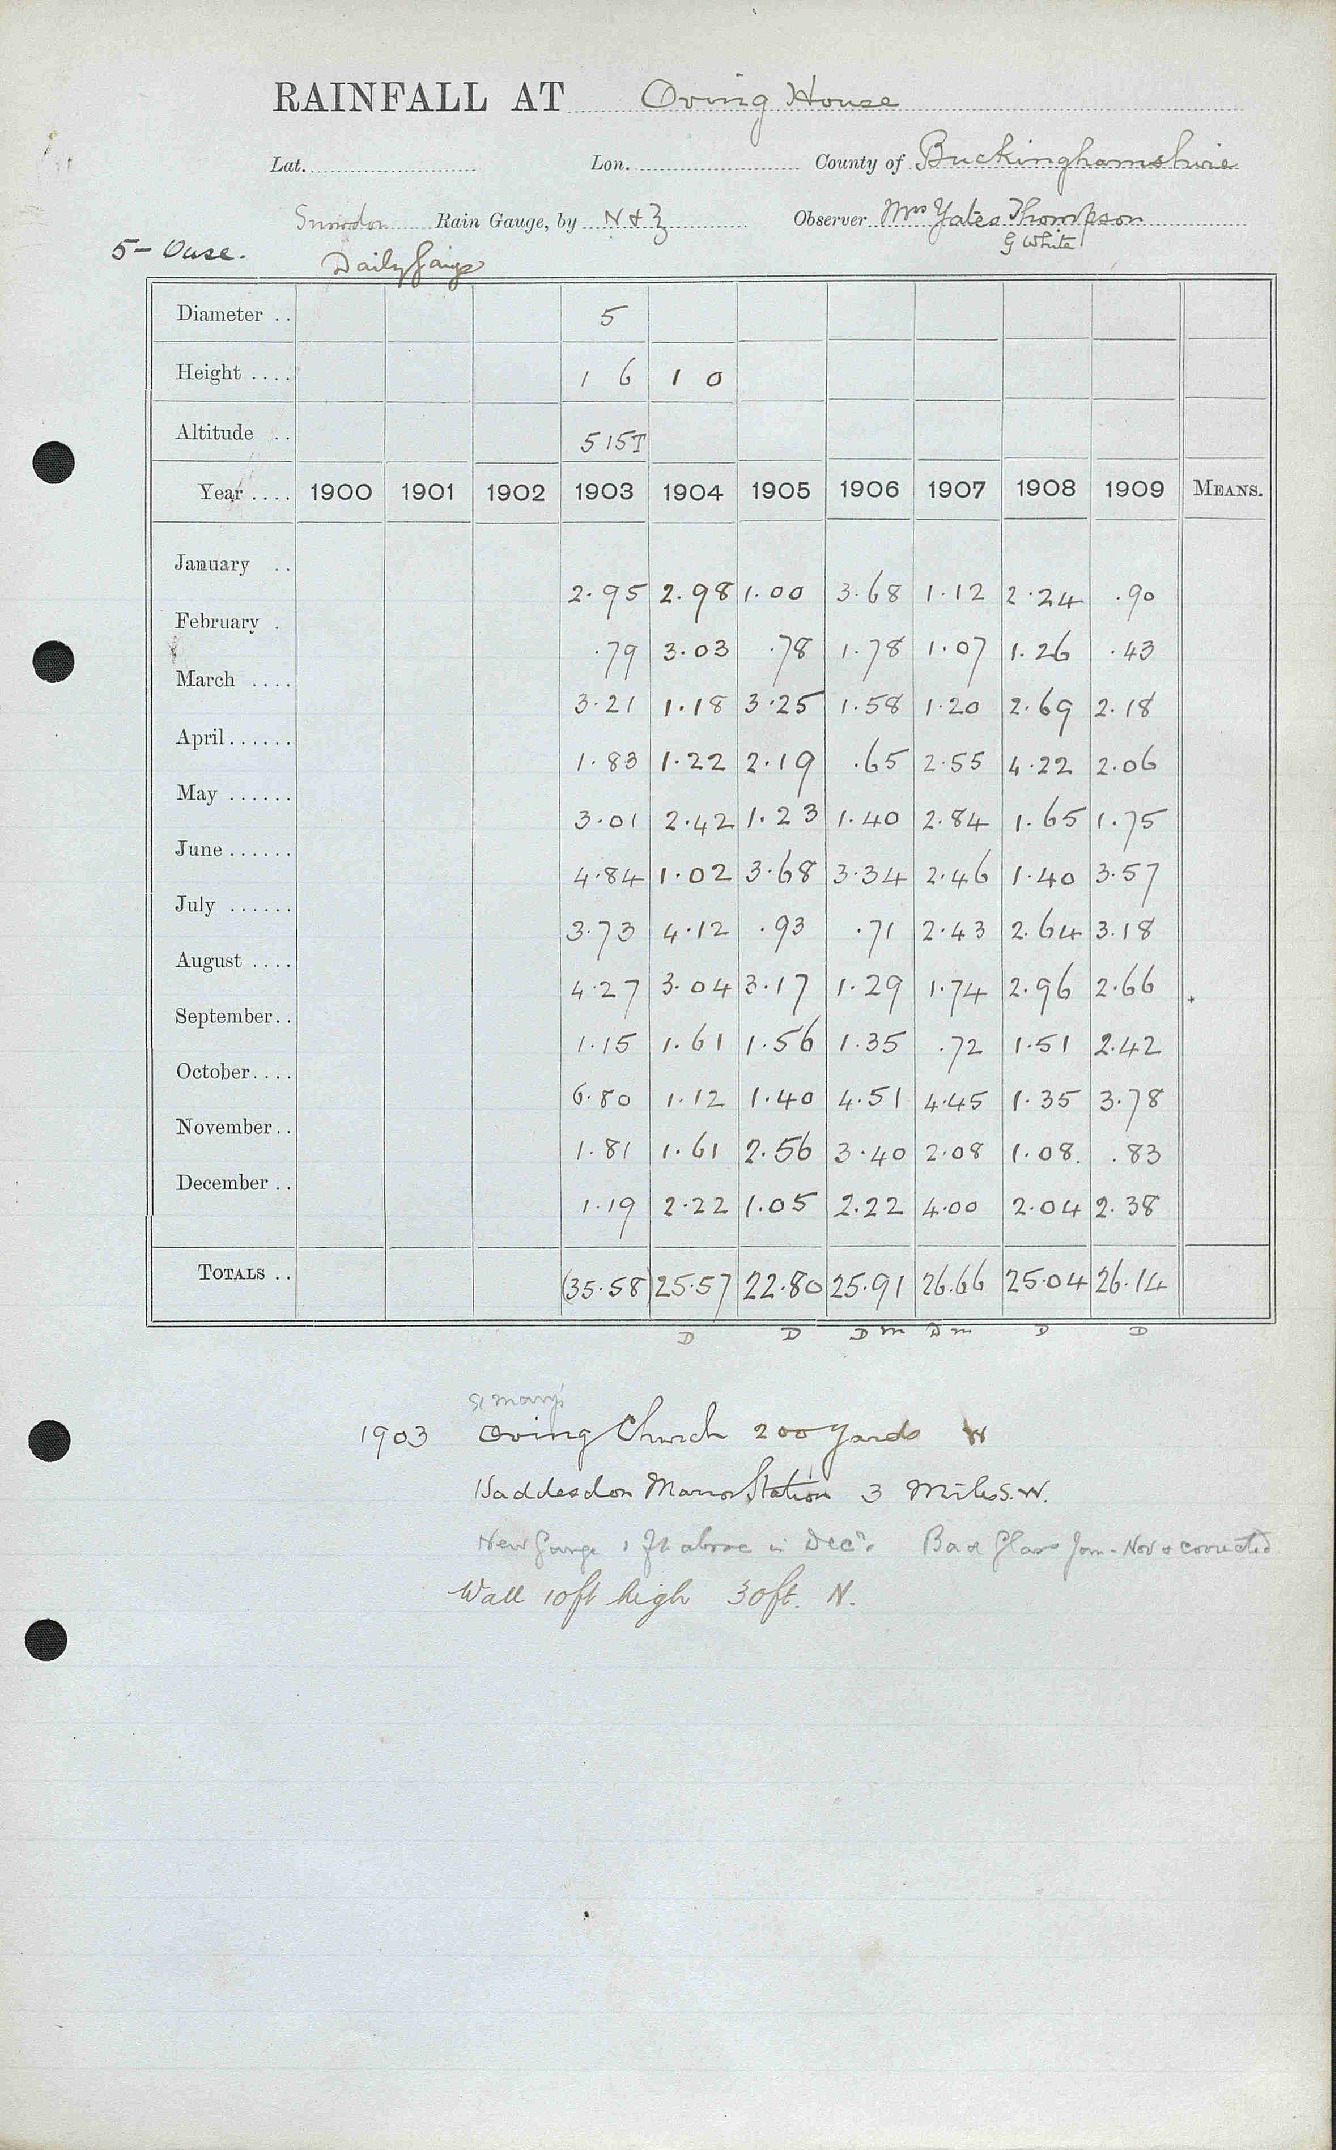 RAINFALL AT Oving House
Lat. Lon. County of Buckinghamshire
Snowdon Rain Gauge, by N & Z Observer Mrs Yates Thompson
G White
5 - Ouse. Daily Gauge
Diameter .. 5
Height .... 1 6 1 0
Altitude .. 515T
Year .... 1900 1901 1902 1903 1904 1905 1906 1907 1908 1909 MEANS.
January .. 2.95 2.98 1.00 3.68 1.12 2.24 .90
February . .79 3.03 .78 1.78 1.07 1.26 .43
March .... 3.21 1.18 3.25 1.58 1.20 2.69 2.18
April...... 1.83 1.22 2.19 .65 2.55 4.22 2.06
May ...... 3.01 2.42 1.23 1.40 2.84 1.65 1.75
June...... 4.84 1.02 3.68 3.34 2.46 1.40 3.57
July ...... 3.73 4.12 .93 .71 2.43 2.64 3.18
August .... 4.27 3.04 3.17 1.29 1.74 2.96 2.66
September.. 1.15 1.61 1.56 1.35 .72 1.51 2.42
October.... 6.80 1.12 1.40 4.51 4.45 1.35 3.78
November.. 1.81 1.61 2.56 3.40 2.08 1.08 .83
December .. 1.19 2.22 1.05 2.22 4.00 2.04 2.38
TOTALS .. (35.58 25.57 22.80 25.91 26.66 25.04 26.14
D D D m D m D D
St Mary's
1903 Oving Church 200 Yards W
Waddesdon Manor Station 3 Miles S.W.
New Gauge 1 ft above in Decr. Bad Glass Jan - Nov & corrected
Wall 10ft high 30ft. N.